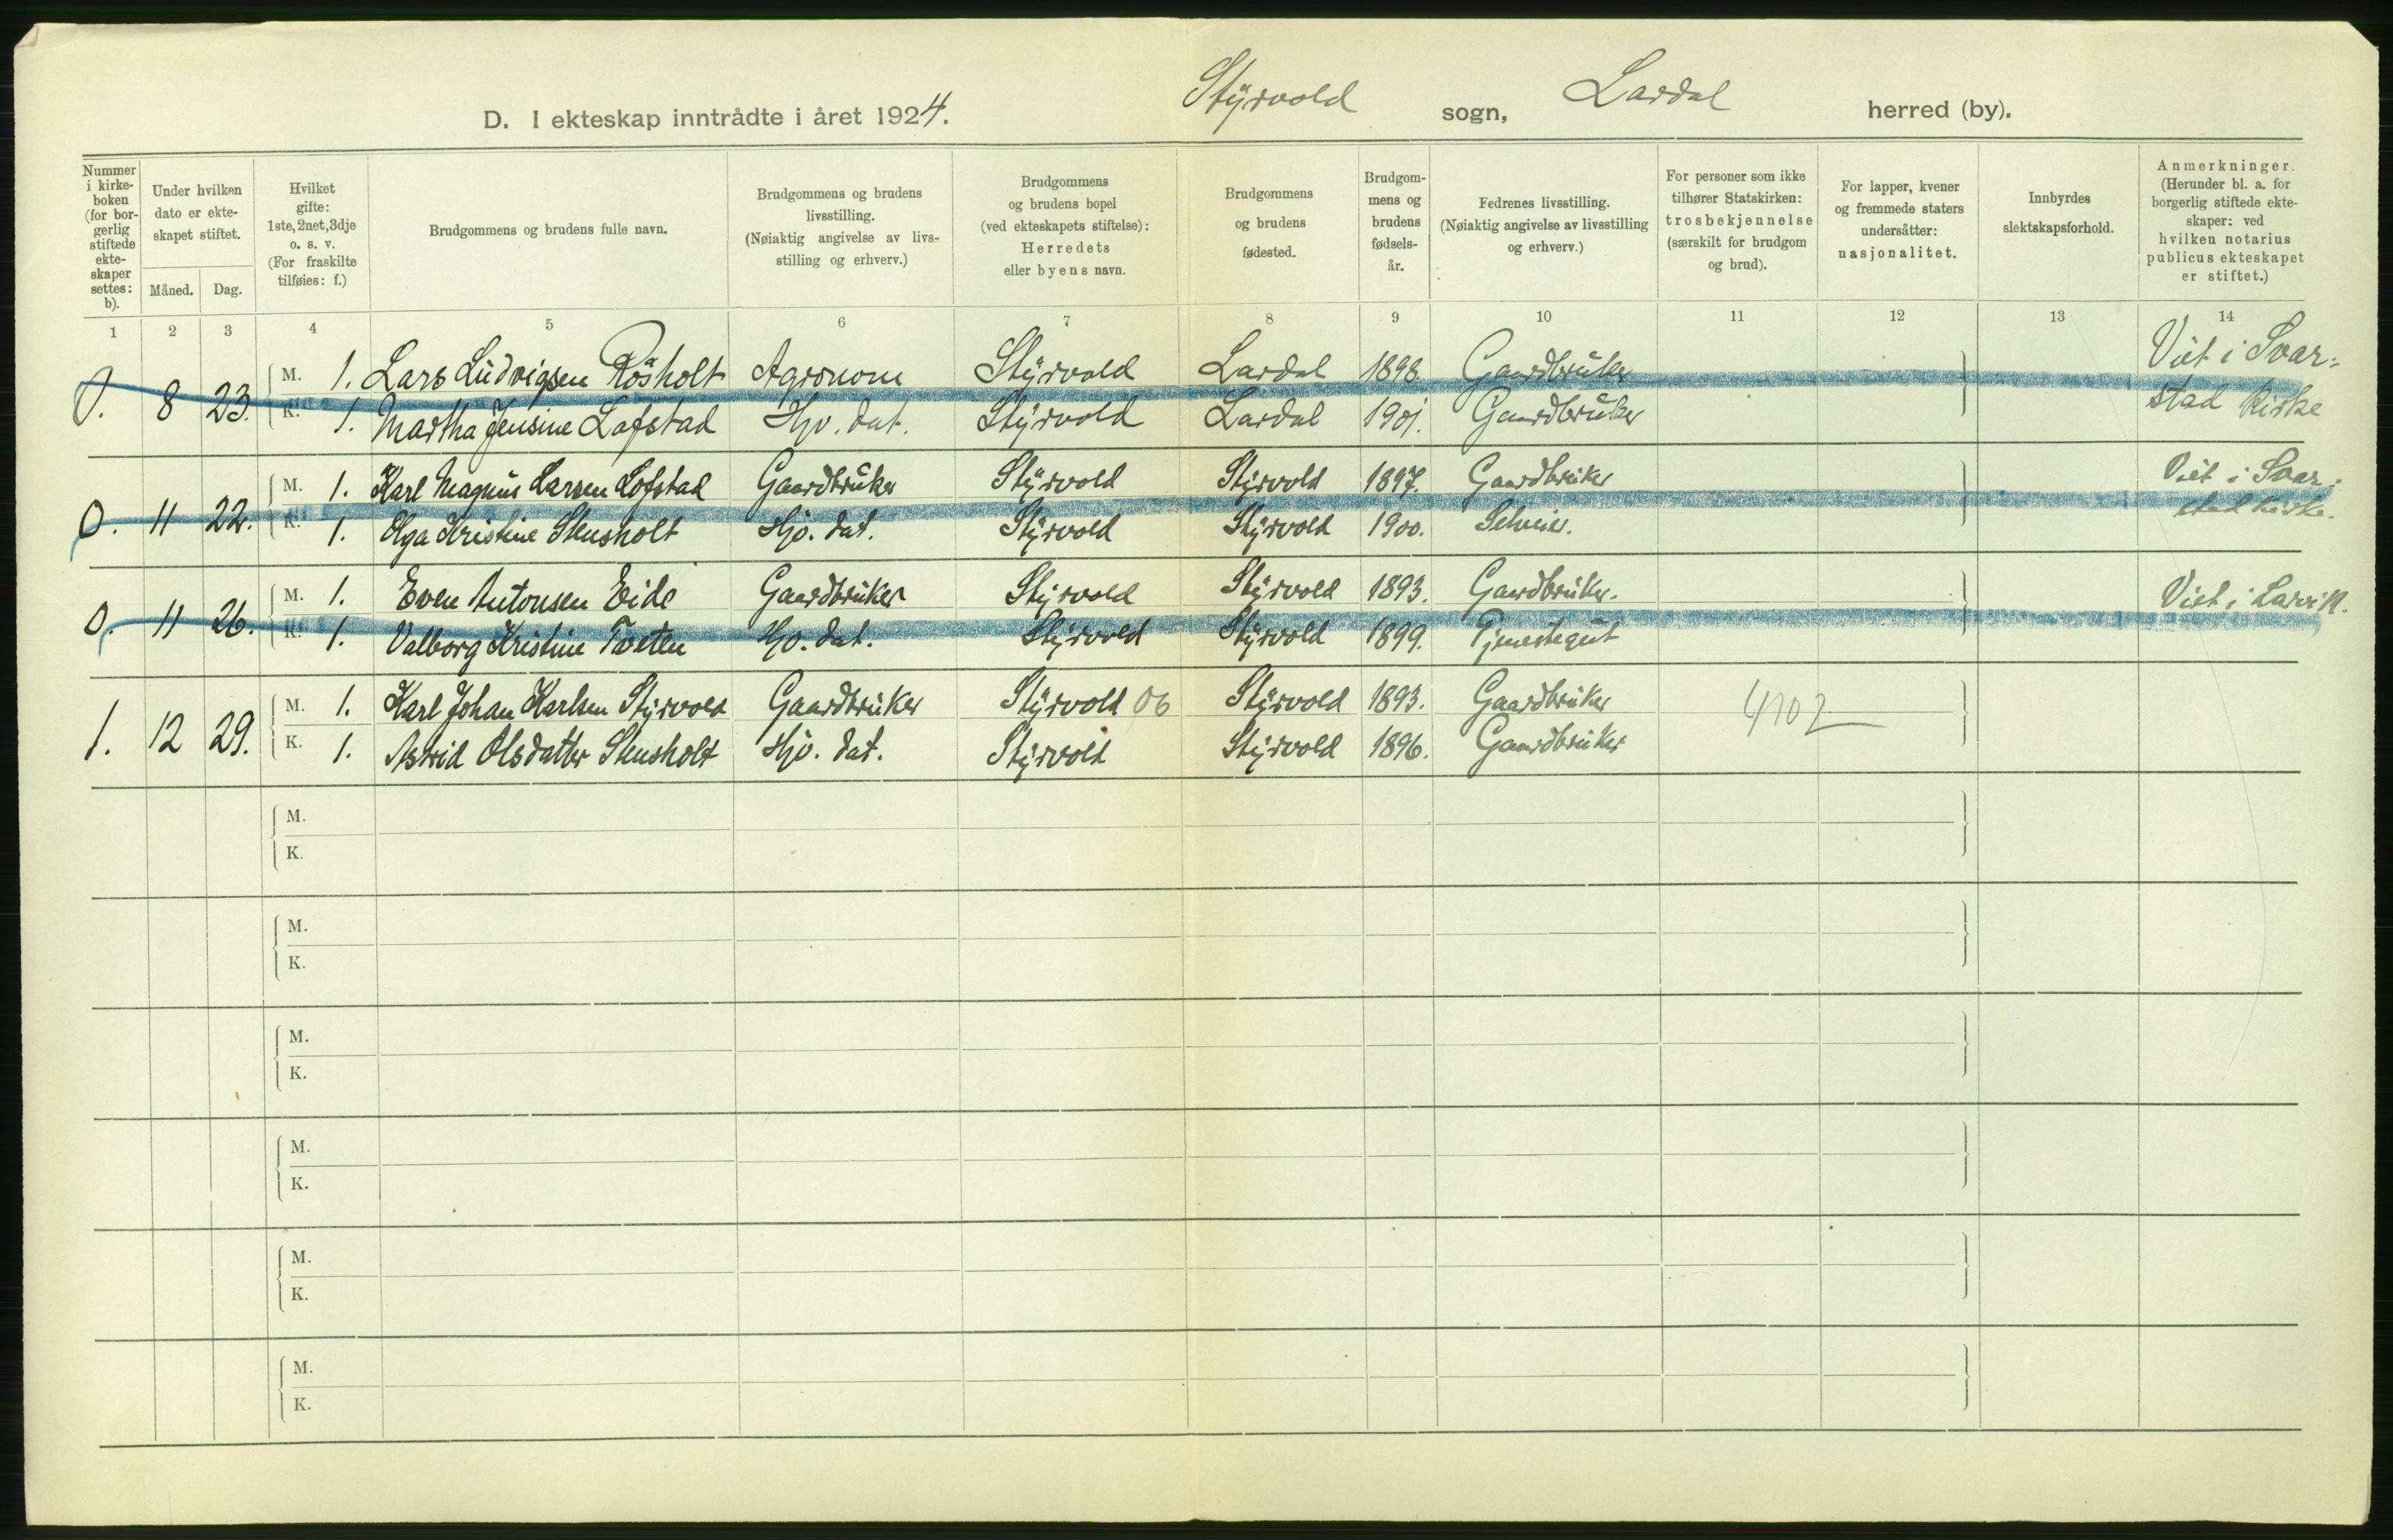 D. I ekteskap inntrådte i året 1924. Styrvold sogn, Lardal herred (by).
Nummer i kirke-boken (for bor-gerlig stiftede ekte-skaper settes: b).
Under hvilken dato er ekte-skapet stiftet.
Måned. Dag.
Hvilket gifte: 1ste, 2net, 3dje o. s. v. (For fraskilte tilføies: f.)
Brudgommens og brudens fulle navn.
Brudgommens og brudens livsstilling. (Nøiaktig angivelse av livs-stilling og erhverv.)
Brudgommens og brudens bopel (ved ekteskapets stiftelse): Herredets eller byens navn.
Brudgommens og brudens fødested.
Brudgom-mens og brudens fødsels-år.
Fedrenes livsstilling. (Nøiaktig angivelse av livsstilling og erhverv.)
For personer som ikke tilhører Statskirken: trosbekjennelse (særskilt for brudgom og brud).
For lapper, kvener og fremmede staters undersåtter: nasjonalitet.
Innbyrdes slektskapsforhold.
Anmerkninger. (Herunder bl. a. for borgerlig stiftede ekte-skaper: ved hvilken notarius publicus ekteskapet er stiftet.)
1 2 3 4 5 6 7 8 9 10 11 12 13 14
0. 8 23. M. 1. Lars Ludvigsen Røsholt Agronom Styrvold Lardal 1898. Gaardbruker Viet i Svar-
K. 1. Martha Jensine Lofstad Hjv. dat. Styrvold Lardal 1901. Gaardbruker stad Kirke
0. 11 22. M. 1. Karl Magnus Larsen Lofstad Gaardbruker Styrvold Styrvold 1897. Gaardbruker Viet i Svar-
K. 1. Olga Kristine Stensholt Hjv. dat. Styrvold Styrvold 1900. Selveier. stad Kirke.
0. 11 26. M. 1. Even Antonsen Eide Gaardbruker Styrvold Styrvold 1893. Gaardbruker. Viet i Larvik.
K. 1. Valborg Kristine Tveten Hjv. dat. Styrvold Styrvold 1899. Tjenestegut
1. 12 29. M. 1. Karl Johan Karlsen Styrvold Gaardbruker Styrvold 06 Styrvold 1893. Gaardbruker 4702
K. 1. Astrid Olsdatter Stensholt Hjv. dat. Styrvold Styrvold 1896. Gaardbruker
M.
K.
M.
K.
M.
K.
M.
K.
M.
K.
M.
K.